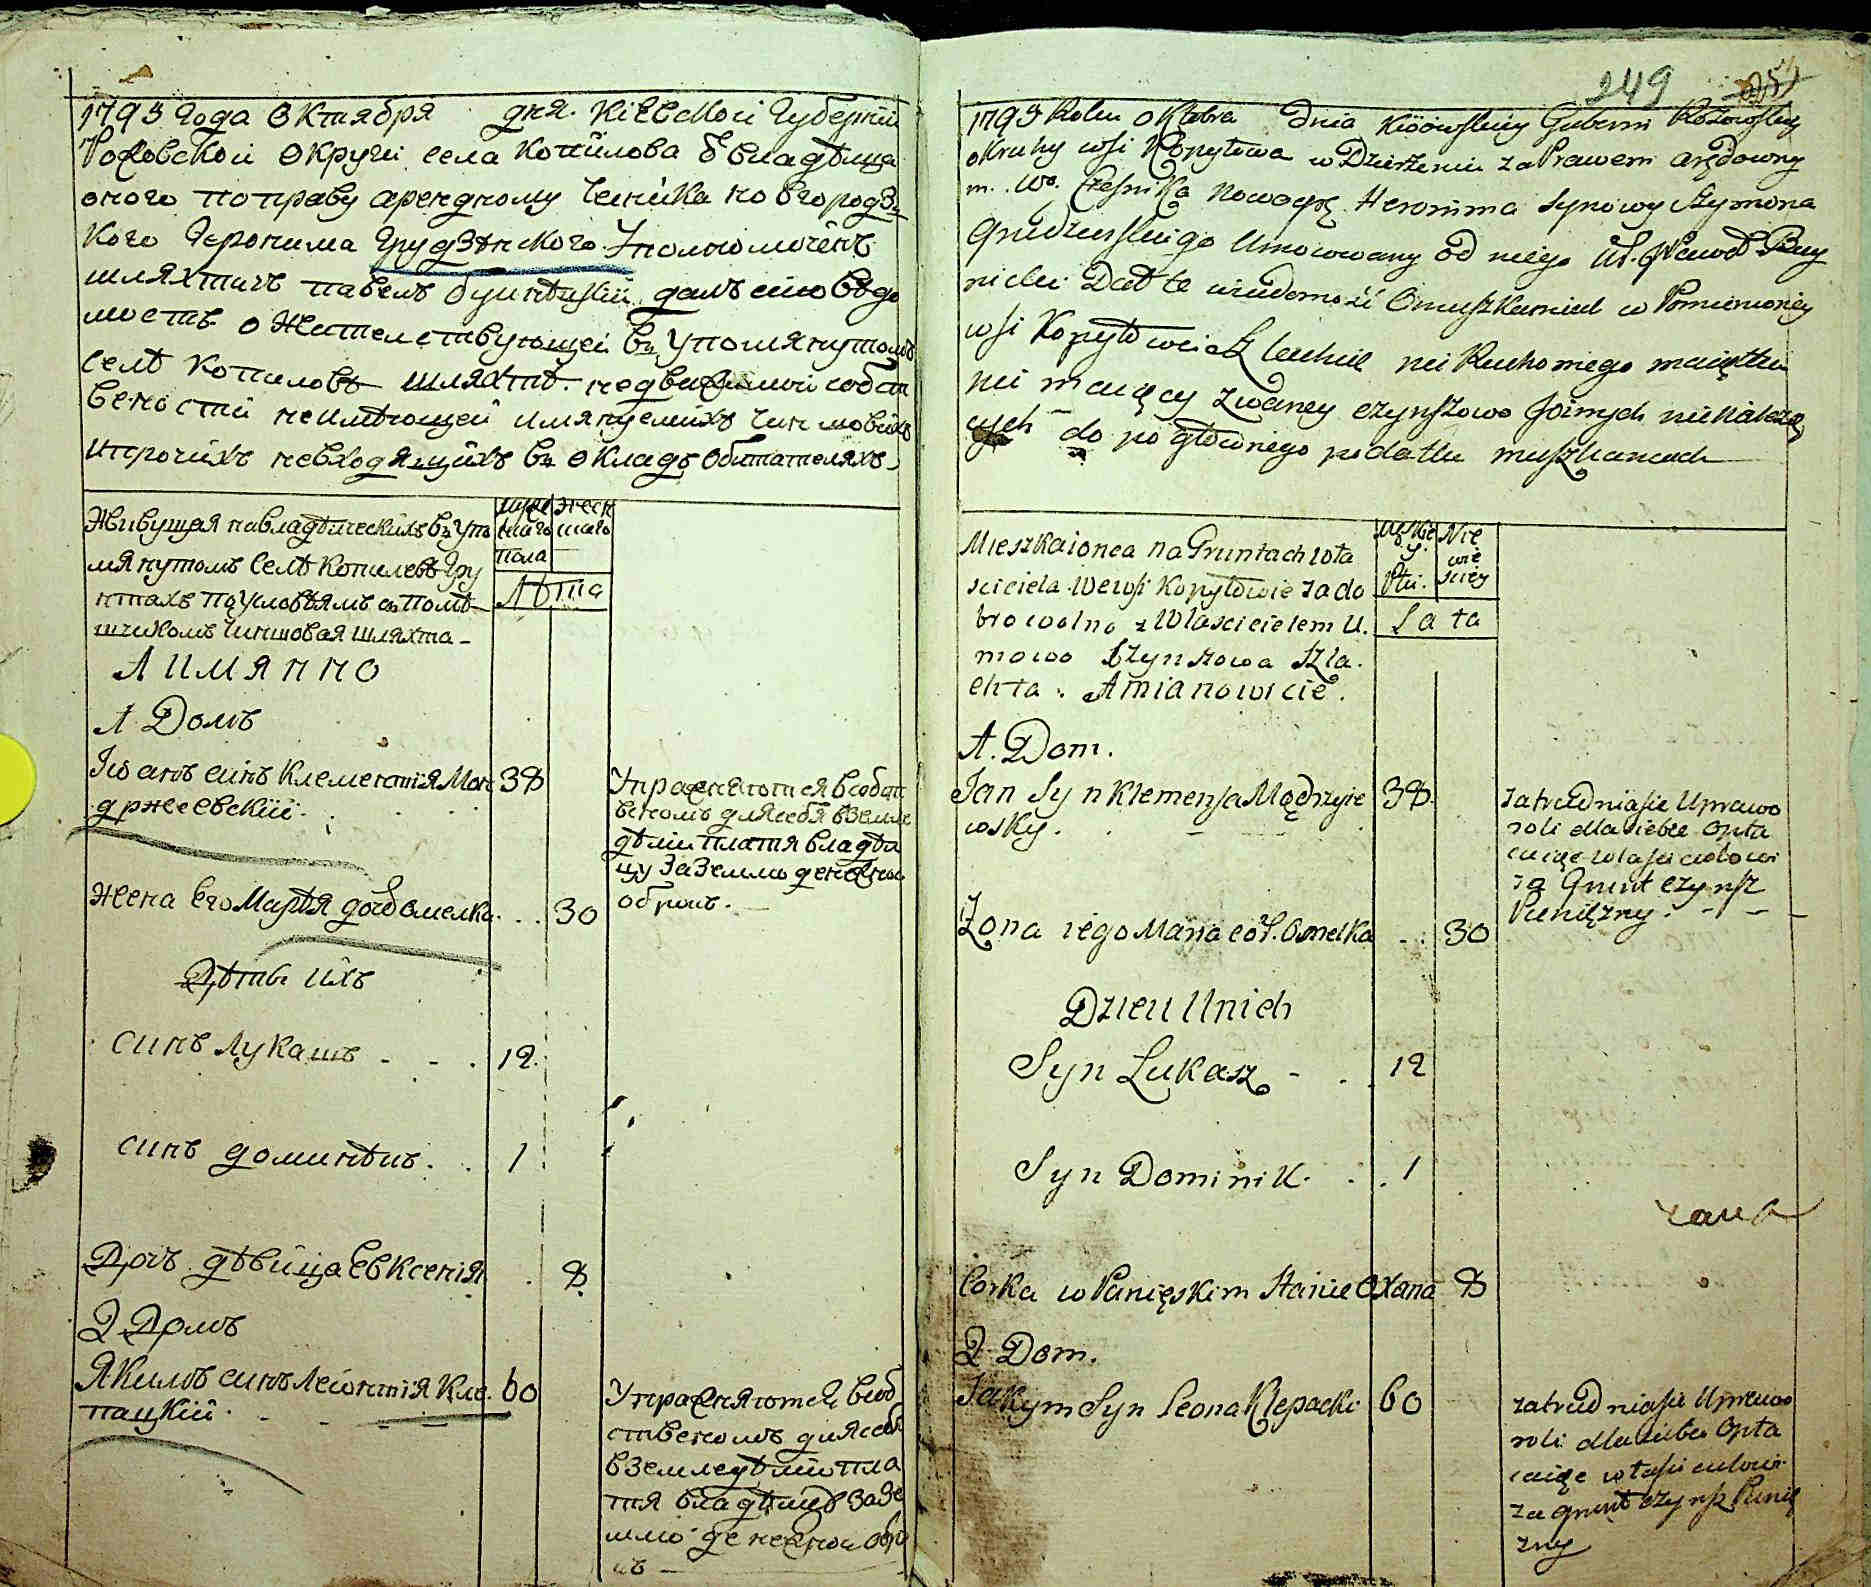 1793 года Октября дня. Кіевской Губерніи
округи села Копилова владѣльца
оного по праву арендному Чесника новгородз
кого Геронима Грудзѣнского Уполномоченъ
шляхтичь павелъ далъ сию вѣдо
мость о жительствующей въ упомянутомъ
селѣ Копиловѣ шляхтѣ недвижимой собст
вености неимѣющей имянуемихъ чиншовихъ
ипрочихъ невходящихъ въ окладъ обитателяхъ
Живущая навладѣлческихъ въ упо
мянутомъ селѣ Копилевѣ гру
нтахъ поусловѣямъ съ помѣ
щикомъ чиншовая шляхта
А имянно
муже
ского
пола
женс
каго
Лѣта
1 Домъ
Іоанъ синъ Клементія Мон
држеевскій
38
Упражняются всобст
венномъ длясебя вземле
дѣліи платя владѣл
цу заземлю денежной
оброкъ.
жена Его Марія дочь Омелка
30
Дѣти ихъ
синъ Лукашъ
12
синъ доминѣкъ
1
Дочь дѣвица Евксенія
8
2 Домъ
Якимъ синъ Леонтія Кле
пацкій
60
Упражняются всоб
ственномъ длясебя
вземледѣліи пла
тя владѣлцу зазе
млю денежной обро
къ
249
1793 Roku Oktobra Dnia Kiiowskiey Guberni
okruhy wsi Kopyłowa w Dzierżeniu za Prawem arędowny
m. Wo. Cześnika Nowogrs. Heronima Synowy Szymona
Grudzinskiego Umocowany od niego
Dał te wiadomość Omiszkaniach w Pomienioney
wsi Kopyłowie Szlachcie nie Ruchomego maiątku
nie maiący zwaney czynszowo Jinnych nienależą
cych do pogłownego podatku mieszkancach
Mieszkaionca na Gruntach wła
sciciela wewsi Kopyłowie za do
browolno z Włascicielem U.
mowo Czynszowa Szla.
chta. Amianowicie.
Męskie
y
Płci.
Nie
wie
sciey
Lata
1. Dom.
Jan Syn Klemensa Mądrzyie
wsky.
38
zatrudniasie Uprawo
roli dla siebie Opła
caiąc własicielowi
za Grunt czynsz
Pieniężny.
Żona iego Maria cór. Omelka
30
Dzieci Unich
Syn Łukasz
12
Syn Dominik.
1
Corka w Panięskim Stanie Oxana
8
2 Dom.
Jakym Syn Leona Klepacki
60
zatrudniasie Uprawo
roli dla siebie Opła
caiąc własicielowi
za grunt czynsz Pienię
zny